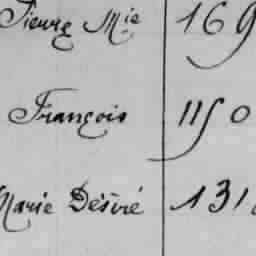 Pierre Mie 169
François 1150
Marie Désiré 131